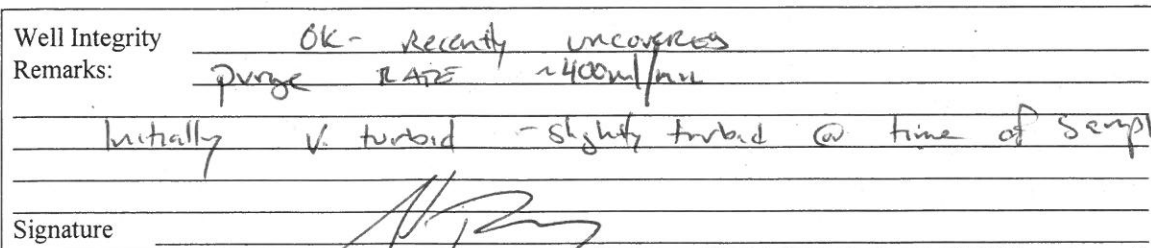 Well Integrity OK- Recently uncovered
Remarks: purge RATE ~400ml/min
Initially V. turbid - slightly turbid @ time of Sampl
Signature